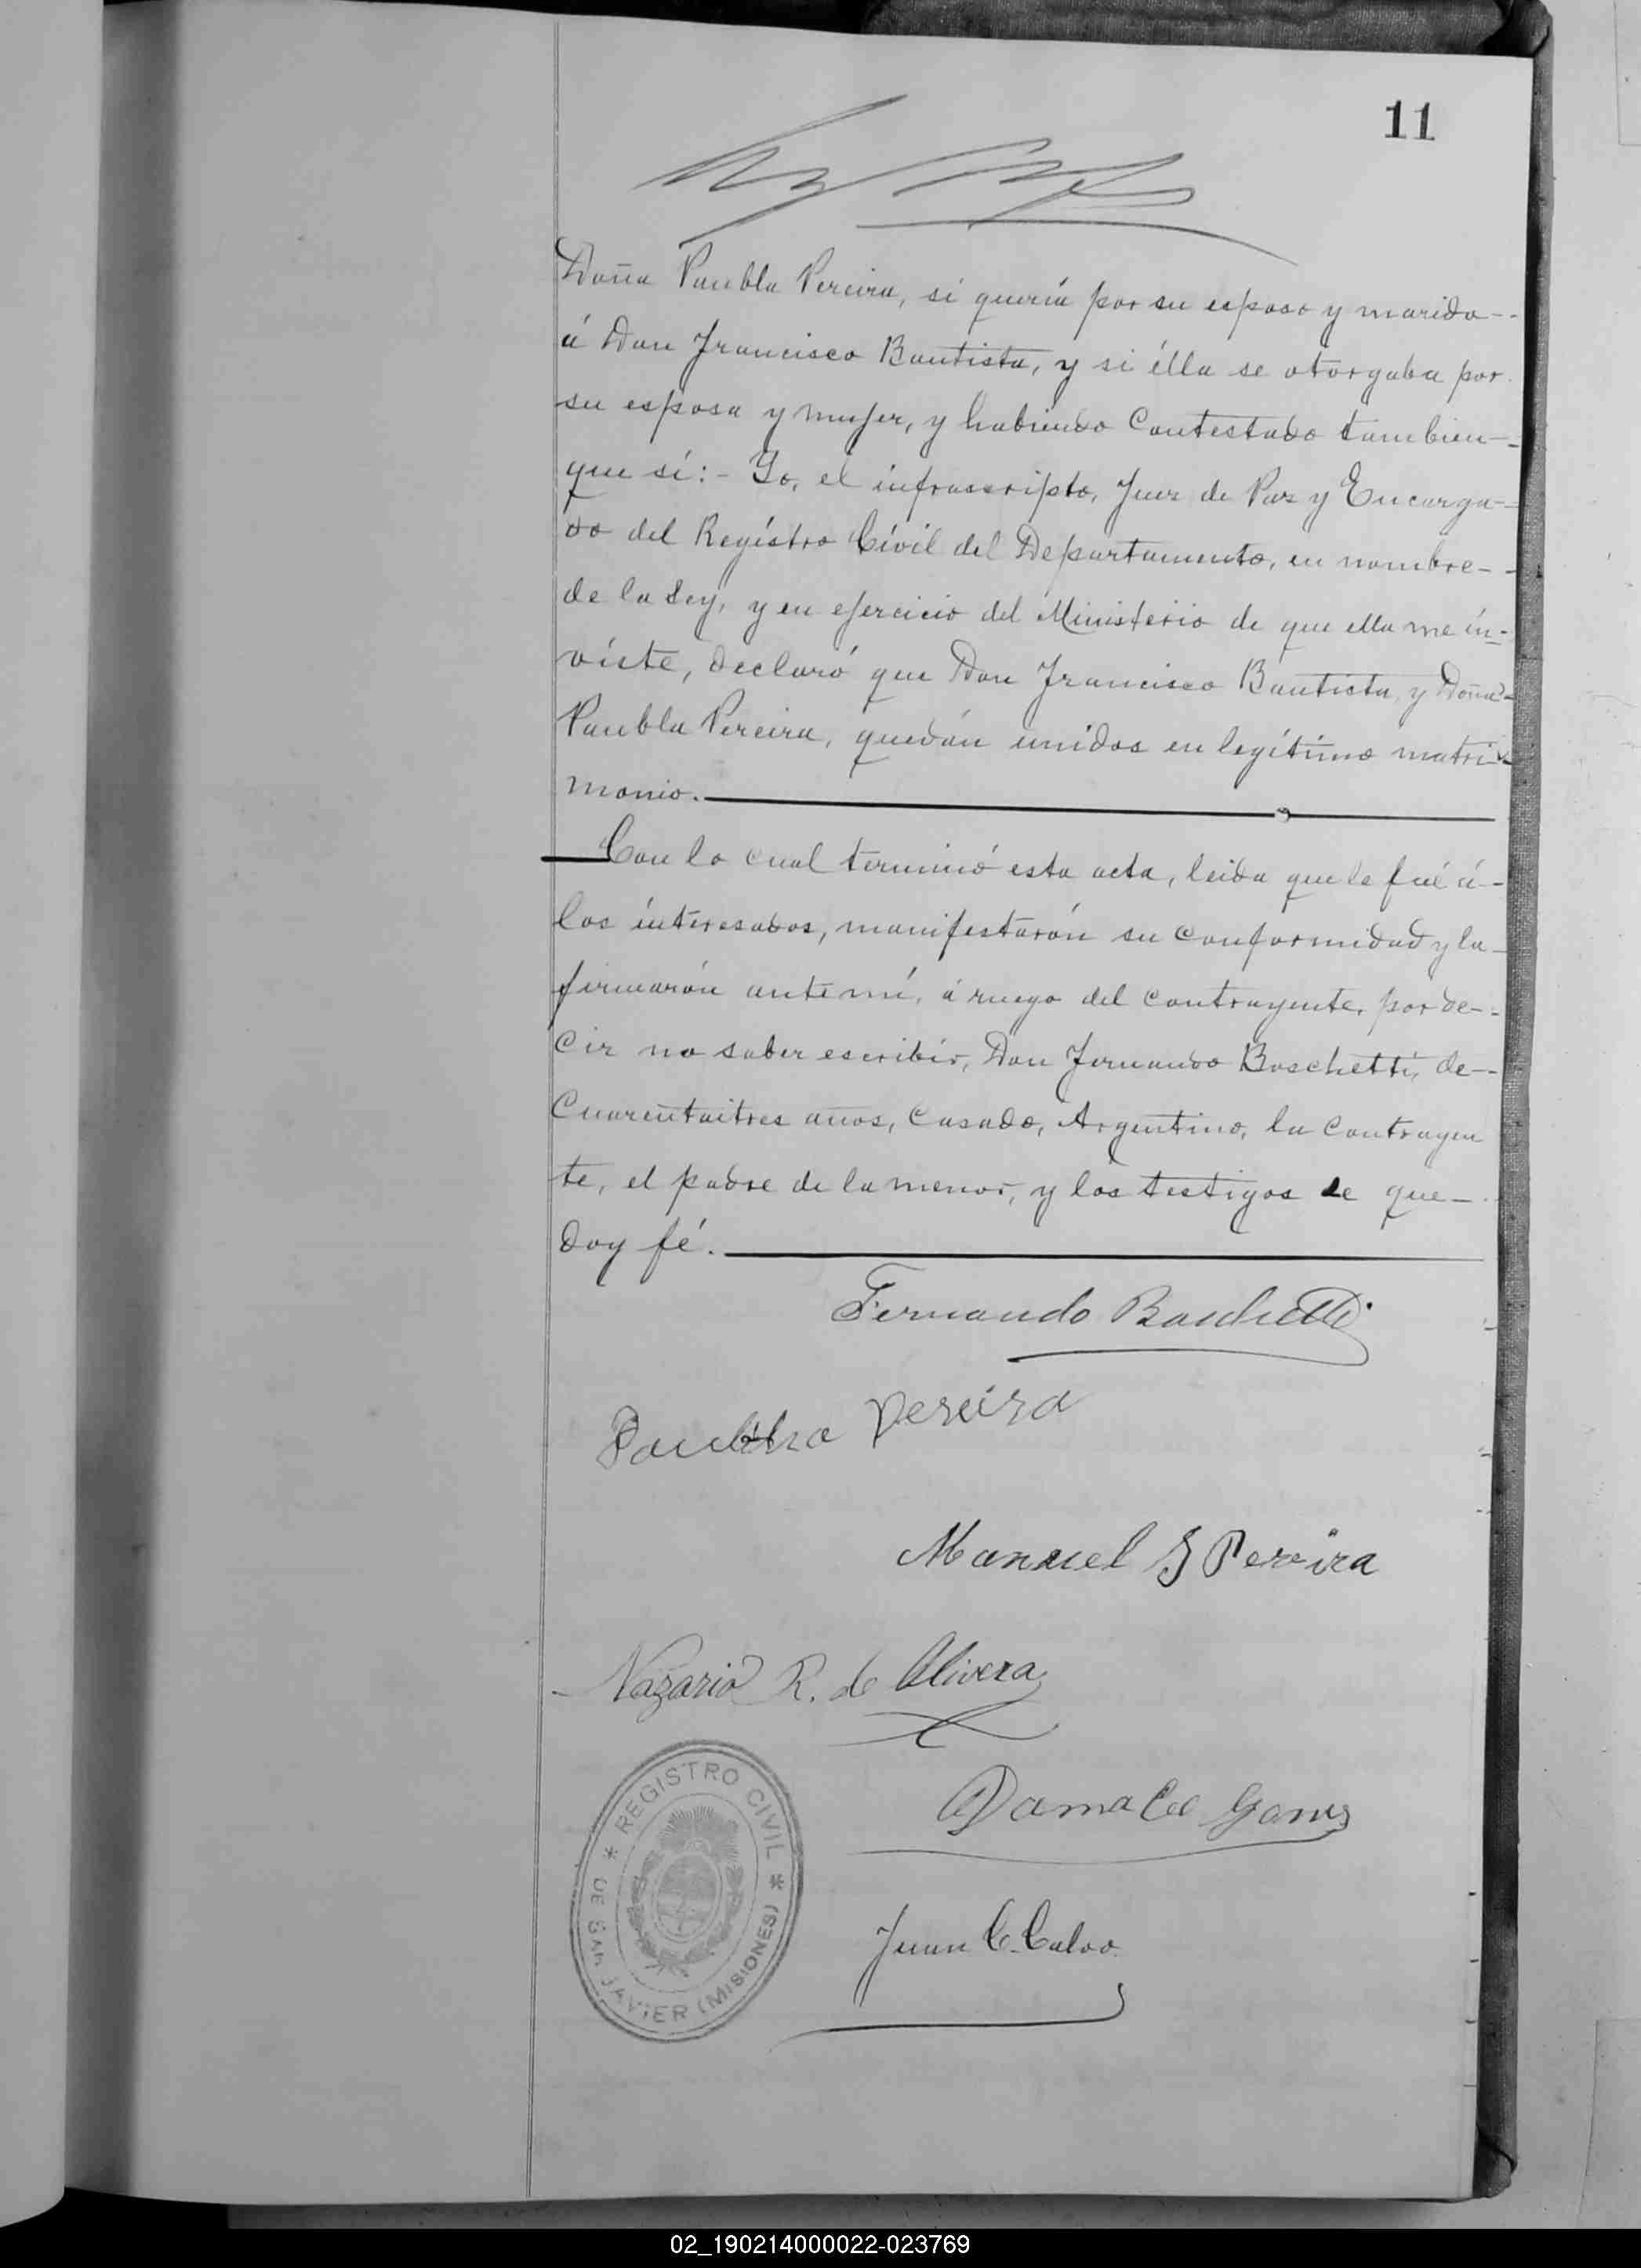 11
Doña Paubla Pereira, si quería por su esposo y marido--
á Don Francisco Bautista, y si élla se otorgaba por
su esposa y mujer, y habiendo Contestado tambien-
que sí:- Yo, el infrascripto, Juez de Paz y Encarga-
do del Registro Civil del Departamento, en nombre--
de la Ley, y en ejercicio del Ministerio de que ella me in-
viste, declaró que Don Francisco Bautista, y Doña-
Paubla Pereira, quedán unidos en legítimo matri-
monio.
Con lo cual terminó esta acta, leida que le fué á-
los interesados, manifestarón su conformidad y la-
firmarón ante mí, á ruego del contrayente, por de--
cir no saber escribir, Don Fernando Boschetti, de--
Cuarentaitres años, Casado, Argentino, la Contrayen
te, el padre de la menor, y los testigos de que-
doy fé.
Fernando Boschetti
Pereira
Manuel S Pereira
Nazario R. de Olivera
Juan C. Calvo
* REGISTRO CIVIL * DE SAN JAVIER (MISIONES)
02_190214000022-023769